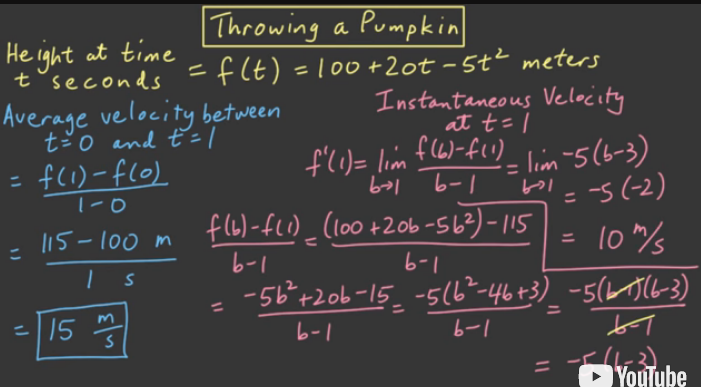 Throwing a Pumpkin
Height at time
t seconds = f(t) = 100 + 20t - 5t² meters
Average velocity between
t=0 and t=1
= f(1) - f(0) / 1-0
= 115 - 100 m / 1 s
= 15 m/s
Instantaneous Velocity
at t=1
f'(1) = lim b→1 f(b)-f(1) / b-1 = lim b→1 -5(b-3)
= -5(-2)
= 10 m/s
f(b)-f(1) / b-1 = (100+20b-5b²)-115 / b-1
= -5b²+20b-15 / b-1 = -5(b²-4b+3) / b-1 = -5(b-1)(b-3) / b-1
= -5(b-3)
YouTube